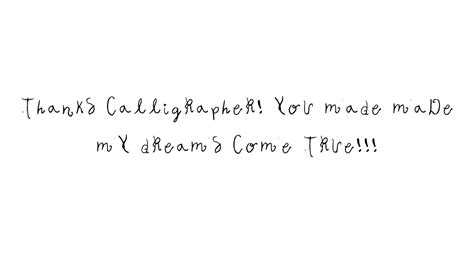 Thanks Calligrapher! You made made
my dreams come true!!!